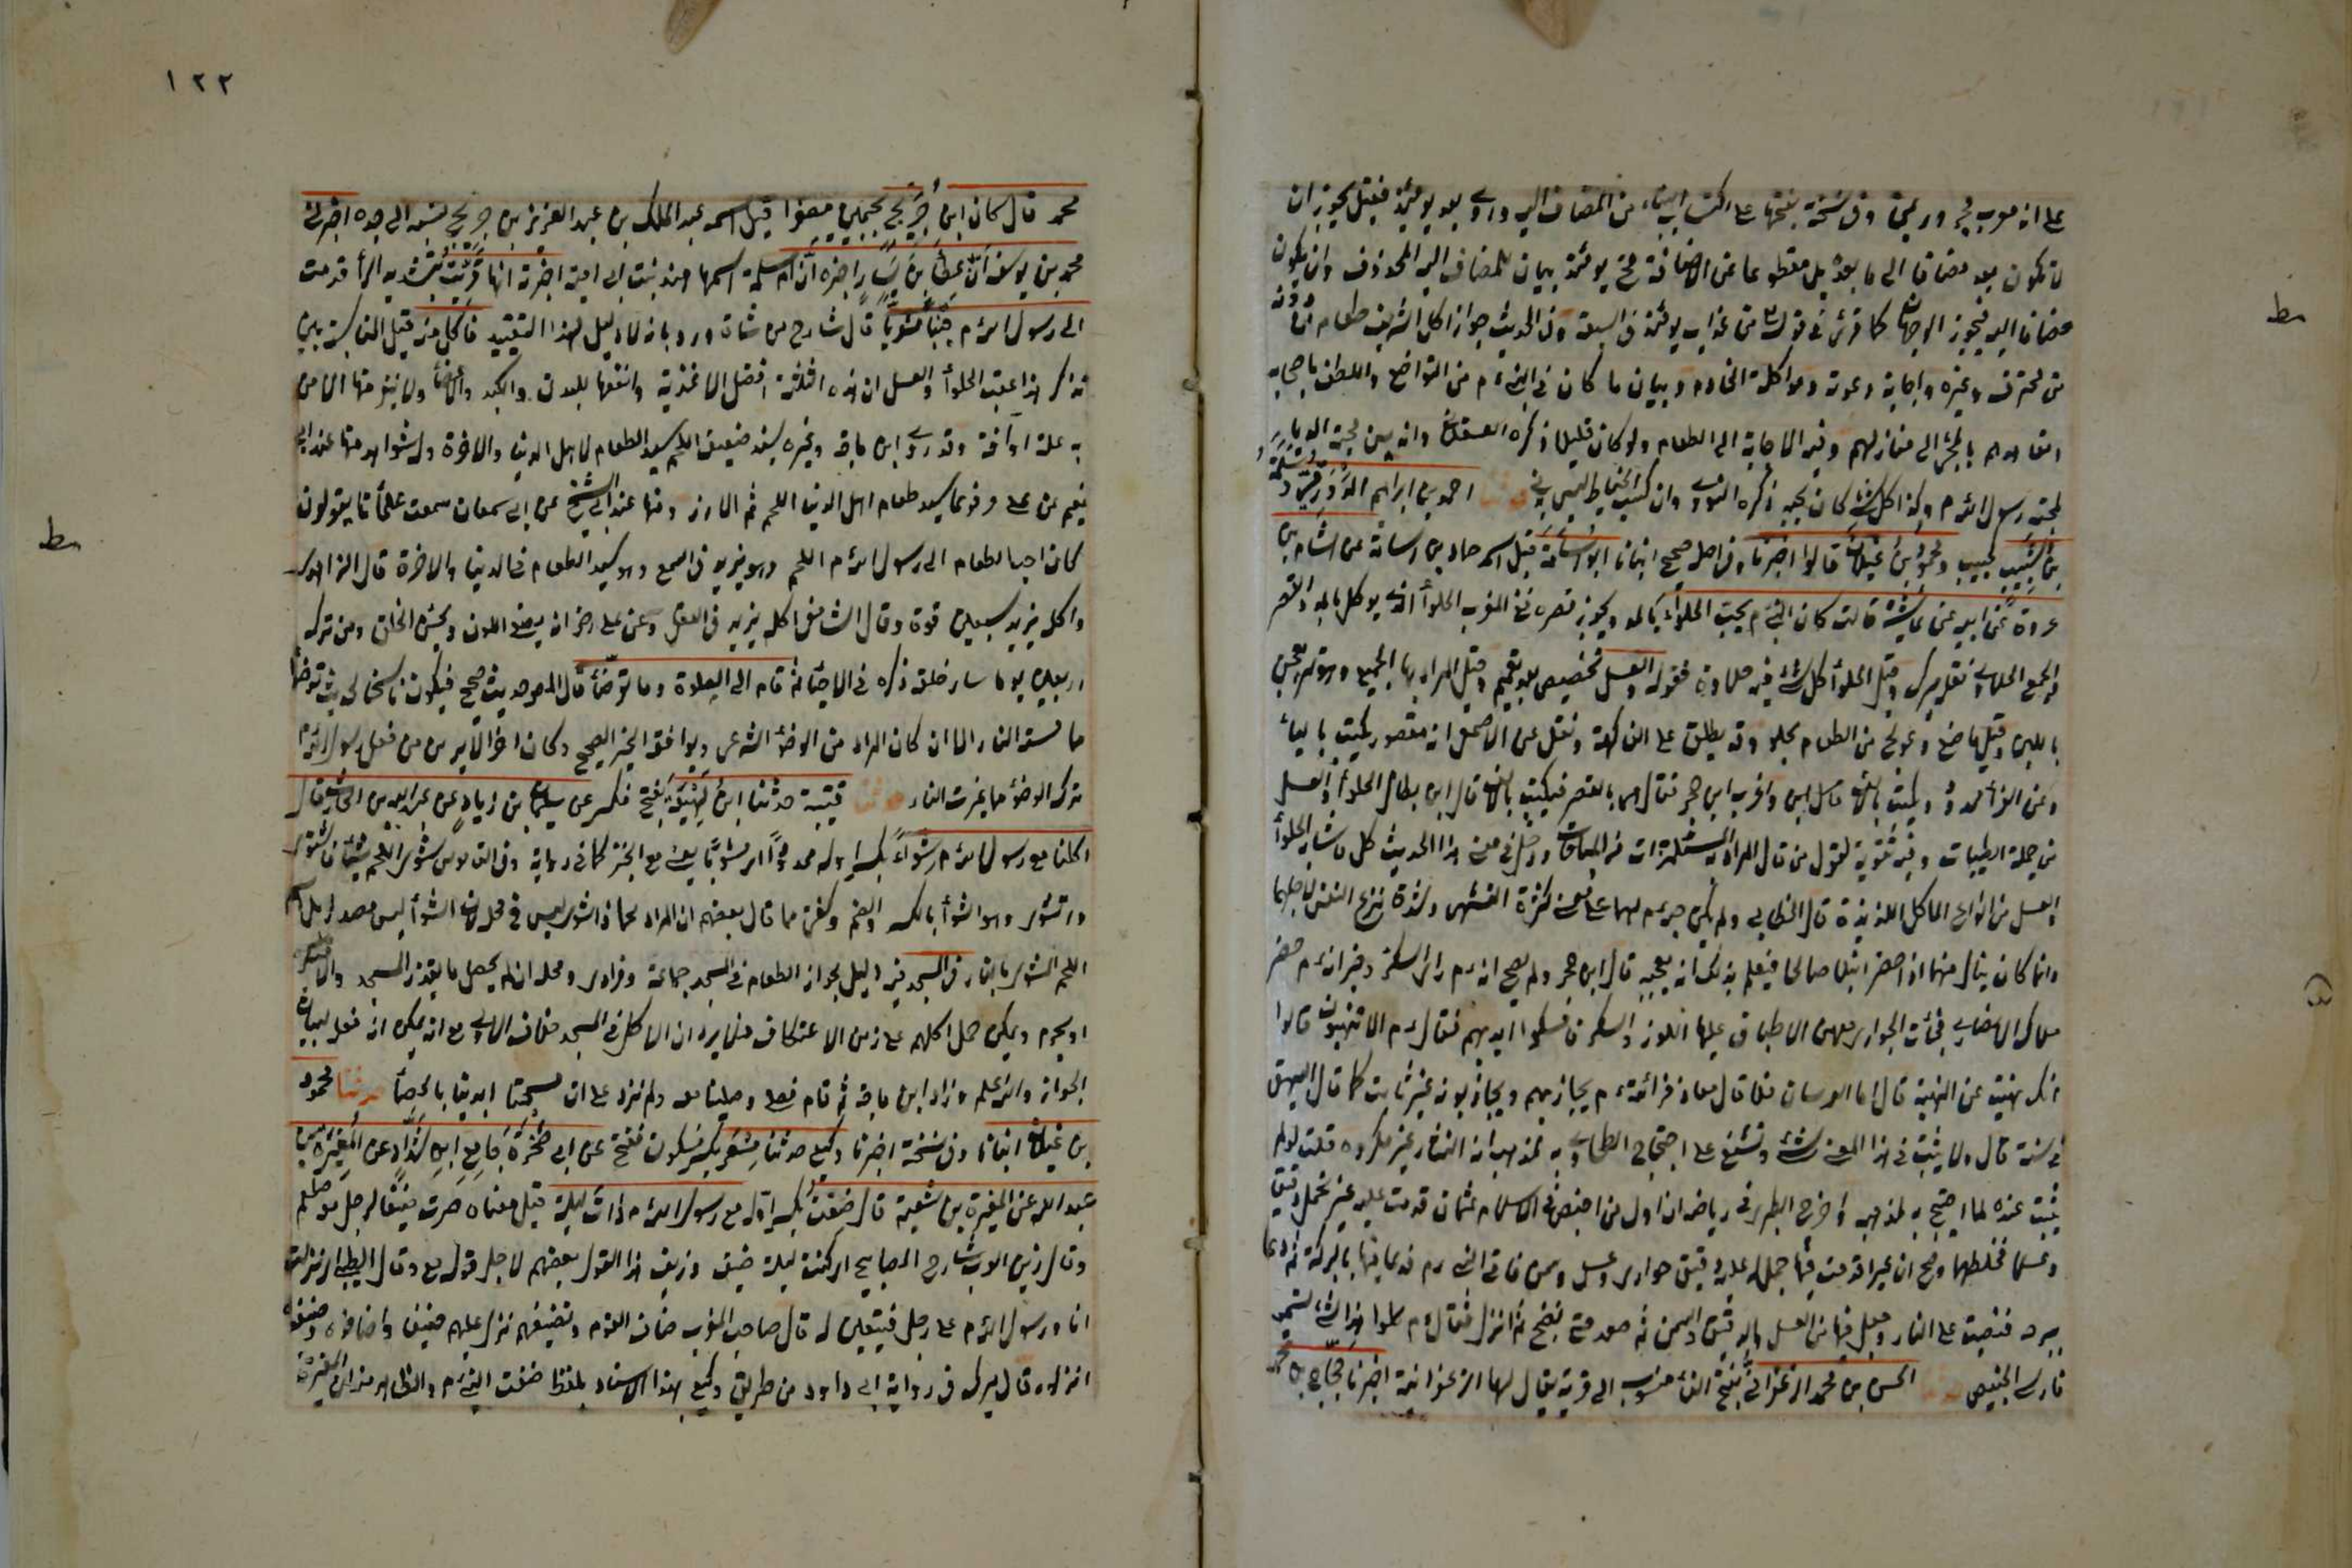 على انه معرب مجرور بمن وفي نسخة بفتحها على اكتساب البناء من المضاف اليه وروى بعد يومئذ فقيل يجوز ان
لا يكون بعد مضافا الى ما بعده بل مقطوعا عن الاضافة فح يومئذ بيان للمضاف اليه المحذوف وان يكون
مضافا اليه فيجوز الوجهان كما قرئ في قوله من عذاب يومئذ في السبعة وفي الحديث جواز اكل الشريف طعام من دونه
من محترف وغيره واجابة دعوته ومواكلة الخادم وبيان ما كان في النبي م من التواضع واللطف باصحابه
وتعاهدهم بالمجئ الى منازلهم وفيه الاجابة الى الطعام ولو كان قليلا ذكره العسقلاني وانه يسن محبة الدباء
لمحبة رسول الله م وكذا كل شئ كان يحبه ذكره النووي وان كسب الخياط ليس بدني حدثنا احمد بن ابراهيم الدورقي وسلمة
بن شبيب كحبيب ومحمود بن غيلان قالوا اخبرنا وفي اصل صحيح انبانا ابو اسامة قيل اسمه حماد بن اسامة عن هشام بن
عروة عن ابيه عن عايشة قالت كان النبي م يحب الحلواء بالمد ويجوز قصره ففي المغرب الحلوأ الذي يوكل بالمد والقصر
والجمع الحلاوي نقله ميرك وقيل الحلوأ كل شئ فيه حلاوة فقوله والعسل تخصيص بعد تعميم وقيل المراد بها المجيع وهو تمر يعجن
بالبن وقيل ما صنع وعولج من الطعام بحلو وقد يطلق على الفاكهة ونقل عن الاصمعي انه مقصور يكتب بالياء
وعن الفرأ ممدود ويكتب بالالف وقيل واغرب ابن حجر فقال هما بالقصر فيكتب بالالف قال ابن بطال الحلوأ والعسل
من جملة الطيبات وفيه تقوية لقول من قال المراد به المستلذات من المباحات ودخل في معنى هذا الحديث كل ما شابه الحلوأ
والعسل من انواع الماكل اللذيذة قال الخطابي ولم يكن حبه م لهما على معنى كثرة التشهي وشدة نزع النفس لاجلهما
وانما كان ينال منهما اذا حضر نيلا صالحا فيعلم بذلك انه يعجبه قال ابن حجر ولم يصح انه م راى السكر وخبر انه م حضر
ملاك الانصاري فجأت الجواري معهن الاطباق عليها اللوز والسكر فامسكوا ايديهم فقال م الا تنتهبون قالوا
انك نهيت عن النهبة قال اما العرسات فلا قال معاذ فرأيته م يجاذبهم ويجاذبونه غير ثابت كما قال البيهقي
في سننه قال ولا يثبت في هذا المعنى شئ وشنع على احتجاج الطحاوي به لمذهبه ان النثار غير مكروه قلت لو لم
يثبت عنده لما احتج به لمذهبه واخرج الطبري في رياضه ان اول من اخبص في الاسلام عثمان قدمت عليه عير تحمل دقيقا
وعسلا فخلطهما وصح ان عيرا قدمت فيها جمل له عليه دقيق حواري وعسل وسمن فاتى النبي م فدعا فيها بالبركة ثم دعا
ببرمة فنصبت على النار وجعل فيها من العسل والدقيق والسمن ثم عصد حتى نضج ثم انزل فقال م كلوا هذا شئ تسميه
فارس الخبيص حدثنا الحسن بن محمد الزعفراني بفتح الفاء منسوب الى قرية يقال لها الزعفرانية اخبرنا حجاج بن محمد
١٢٢
محمد قال كان ابن جريج بجيمين مصغرا قيل اسمه عبد الملك بن عبد العزيز بن جريج نسبه الى جده اخبرني
محمد بن يوسف ان عطأ بن يسار اخبره ان ام سلمة اسمها هند بنت ابي امية اخبرته انها قربت بتشديد الرأ قدمت
الى رسول الله م جنبا مشويا قال شارح من شاة ورد بانه لا دليل لهذا التقييد فاكل منه قيل المناسبة بين
ذكر هذا عقب الحلوأ والعسل ان هذه الثلثة افضل الاغذية وانفعها للبدن والكبد والاعضأ ولا ينفر منها الا من
به علة او آفة وقد روى ابن ماجة وغيره بسند ضعيف اللحم سيد الطعام لاهل الدنيا والاخرة وله شواهد منها عند ابي
نعيم عن علي مرفوعا سيد طعام اهل الدنيا اللحم ثم الارز ومنها عند ابي الشيخ عن ابي سمعان سمعت علمأنا يقولون
كان احب الطعام الى رسول الله م اللحم وهو يزيد في السمع وهو سيد الطعام في الدنيا والاخرة قال الزهري
واكله يزيد سبعين قوة وقال الشافعي اكله يزيد في العقل وعن علي رض انه يصفي اللون ويحسن الخلق ومن تركه
اربعين يوما سأ خلقه ذكره في الاحيأ ثم قام الى الصلوة وما توضأ قال المص حديث صحيح فيكون ناسخا لحديث توضأ
مما مسته النار الا ان كان المراد من الوضوء الشرعي ويوافقه الخبر الصحيح وكان اخر الامرين من فعل رسول الله م
ترك الوضوء مما غيرت النار حدثنا قتيبة حدثنا ابن لهيعة بفتح فكسر عن سليمان بن زياد عن عبد الله بن الحارث قال
اكلنا مع رسول الله م شوأ بكسر اوله ممدودا اي مشويا يعني مع الخبز كما في رواية وفي القاموس شوى اللحم شيا فاشتوى
وانشوى وهو الشوأ بالكسر والضم
اللحم المشوي بالنار في المسجد فيه دليل لجواز الطعام في المسجد جماعة وفرادى ومحله ان لم يحصل ما يقذر المسجد والا فيكره
او يحرم ويمكن حمل اكلهم على زمن الاعتكاف فلا يرد ان الاكل في المسجد خلاف الاولى مع انه يمكن انه فعل لبيان
الجواز والله اعلم وزاد ابن ماجة ثم قام فصلى وصلينا معه ولم نزد على ان مسحنا ايدينا بالحصبأ حدثنا محمود
بن غيلان انبانا وفي نسخة اخبرنا وكيع حدثنا مسعر بكسر فسكون ففتح عن ابي صخرة جامع بن شداد عن المغيرة بن
عبد الله عن المغيرة بن شعبة قال ضفت بكسر اوله مع رسول الله م ذات ليلة قيل معناه صرت ضيفا لرجل مع صلعم
وقال زين العرب شارح المصابيح اي كنت ليلة ضيفه وزيف هذا القول بعضهم لاجل قوله مع وقال الطيبي اي نزلت
انا ورسول الله م على رجل ضيفين له قال صاحب المغرب ضاف القوم وتضيفهم نزل عليهم ضيفا واضافوه وضيفوه
انزلوه قال ميرك وفي رواية ابي داود من طريق وكيع بهذا الاسناد بلفظ ضفت النبي م والظاهر منه ان المغيرة